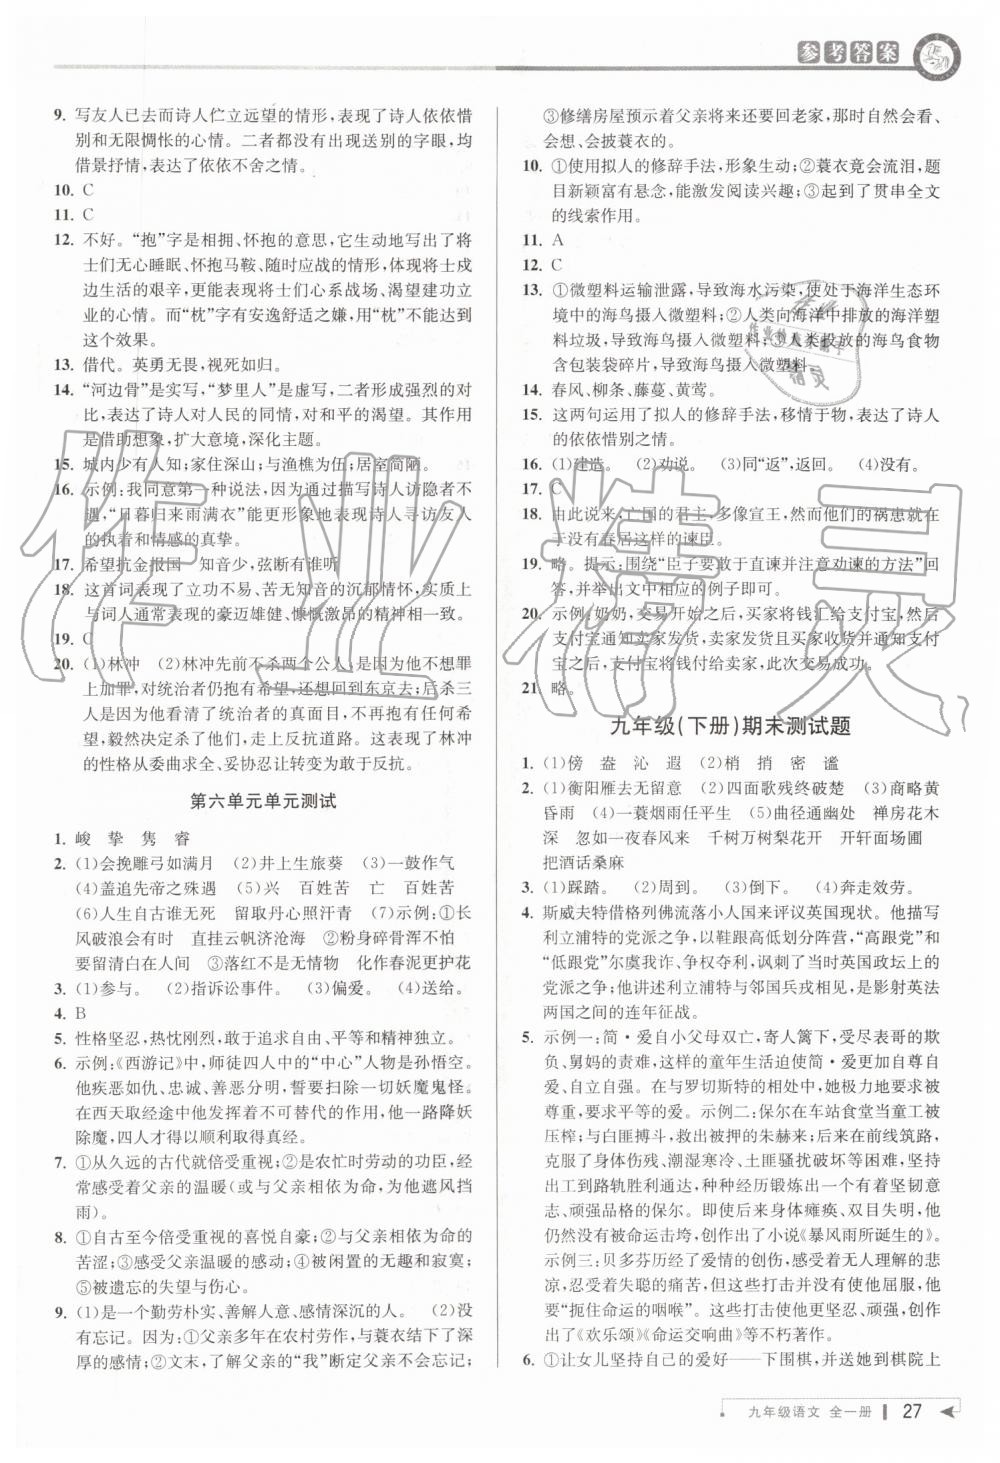 参考答案
9. 写友人已去而诗人伫立远望的情形,表现了诗人依依惜
别和无限惆怅的心情。二者都没有出现送别的字眼,均
借景抒情,表达了依依不舍之情。
10. C
11. C
12. 不好。“抱”字是相拥、怀抱的意思,它生动地写出了将
士们无心睡眠、怀抱马鞍、随时应战的情形,体现将士戍
边生活的艰辛,更能表现将士们心系战场、渴望建功立
业的心情。而“枕”字有安逸舒适之嫌,用“枕”不能达到
这个效果。
13. 借代。英勇无畏,视死如归。
14. “河边骨”是实写,“梦里人”是虚写,二者形成强烈的对
比,表达了诗人对人民的同情,对和平的渴望。其作用
是借助想象,扩大意境,深化主题。
15. 城内少有人知;家住深山;与渔樵为伍;居室简陋。
16. 示例:我同意第一种说法,因为通过描写诗人访隐者不
遇,“日暮归来雨满衣”能更形象地表现诗人寻访友人
的执着和情感的真挚。
17. 希望抗金报国 知音少,弦断有谁听
18. 这首词表现了立功不易、苦无知音的沉郁情怀,实质上
与词人通常表现的豪迈雄健、慷慨激昂的精神相一致。
19. C
20. (1)林冲 (2)林冲先前不杀两个公人,是他不想罪
上加罪,对统治者仍抱有希望,还想回到东京去;后杀三
人是因为他看清了统治者的真面目,不再抱有任何希
望,毅然决定杀了他们,走上反抗道路。这表现了林冲
的性格从委曲求全、妥协忍让转变为敢于反抗。
第六单元单元测试
1. 峻 挚 隽 睿
2. (1)会挽雕弓如满月 (2)井上生旅葵 (3)一鼓作气
(4)盖追先帝之殊遇 (5)兴 百姓苦 亡 百姓苦
(6)人生自古谁无死 留取丹心照汗青 (7)示例:①长
风破浪会有时 直挂云帆济沧海 ②粉身碎骨浑不怕
要留清白在人间 ③落红不是无情物 化作春泥更护花
3. (1)参与。 (2)指诉讼事件。 (3)偏爱。 (4)送给。
4. B
5. 性格坚忍,热忱刚烈,敢于追求自由、平等和精神独立。
6. 示例:《西游记》中,师徒四人中的“中心”人物是孙悟空。
他疾恶如仇、忠诚、善恶分明,誓要扫除一切妖魔鬼怪。
在西天取经途中他发挥着不可替代的作用,他一路降妖
除魔,四人才得以顺利取得真经。
7. ①从久远的古代就倍受重视;②是农忙时劳动的功臣,经
常感受着父亲的温暖(或与父亲相依为命,为他遮风挡
雨)。
8. ①自古至今倍受重视的喜悦自豪;②与父亲相依为命的
苦涩;③感受父亲温暖的感动;④被闲置的无趣和寂寞;
⑤被遗忘的失望与伤心。
9. (1)是一个勤劳朴实、善解人意、感情深沉的人。 (2)没
有忘记。因为:①父亲多年在农村劳作,与蓑衣结下了深
厚的感情;②文末,了解父亲的“我”断定父亲不会忘记;
③修缮房屋预示着父亲将来还要回老家,那时自然会看、
会想、会披蓑衣的。
10. ①使用拟人的修辞手法,形象生动;②蓑衣竟会流泪,题
目新颖富有悬念,能激发阅读兴趣;③起到了贯串全文
的线索作用。
11. A
12. C
13. ①微塑料运输泄露,导致海水污染,使处于海洋生态环
境中的海鸟摄入微塑料;②人类向海洋中排放的海洋塑
料垃圾,导致海鸟摄入微塑料;③人类投喂的海鸟食物
含包装袋碎片,导致海鸟摄入微塑料。
14. 春风、柳条、藤蔓、黄莺。
15. 这两句运用了拟人的修辞手法,移情于物,表达了诗人
的依依惜别之情。
16. (1)建造。 (2)劝说。 (3)同“返”,返回。 (4)没有。
17. C
18. 由此说来,亡国的君主,多像宣王,然而他们的祸患就在
于没有春居这样的谏臣。
19. 略。提示:围绕“臣子要敢于直谏并注意劝谏的方法”回
答,并举出文中的例子即可。
20. 示例:奶奶,交易开始之后,买家将钱汇给支付宝,然后
支付宝通知卖家发货,卖家发货且买家收货并通知支付
宝之后,支付宝将钱付给卖家,此次交易成功。
21. 略。
九年级(下册)期末测试题
1. (1)傍 盎 沁 遐 (2)梢 捎 密 谧
2. (1)衡阳雁去无留意 (2)四面歌残终破楚 (3)商略黄
昏雨 (4)一蓑烟雨任平生 (5)曲径通幽处 禅房花木
深 忽如一夜春风来 千树万树梨花开 开轩面场圃
把酒话桑麻
3. (1)踩踏。 (2)周到。 (3)倒下。 (4)奔走效劳。
4. 斯威夫特借格列佛流落小人国来评议英国现状。他描写
利立浦特的党派之争,以鞋跟高低划分阵营,“高跟党”和
“低跟党”尔虞我诈、争权夺利,讽刺了当时英国政坛上的
党派之争;他讲述利立浦特与邻国兵戎相见,是影射英法
两国之间的连年征战。
5. 示例一:简·爱自小父母双亡,寄人篱下,受尽表哥的欺
负、舅妈的责难,这样的童年生活迫使简·爱更加自尊自
爱、自立自强。在与罗切斯特的相处中,她极力地要求被
尊重,要求平等的爱。示例二:保尔在车站食堂当童工被
压榨;与白匪搏斗,救出被押的朱赫来;后来在前线筑路,
克服了身体伤残、潮湿寒冷、土匪骚扰等种种困难,坚持
出工到路轨胜利通达,种种经历锻炼出一个有着坚韧意
志、顽强品格的保尔。即使后来身体瘫痪、双目失明,他仍
然没有被命运击垮,创作出了小说《暴风雨所诞生的》。
示例三:贝多芬历经了爱情的创伤,感受着无人理解的悲
伤,忍受着失聪的痛苦,但这些打击并没有使他屈服,他
要“扼住命运的咽喉”。这些打击使他更坚忍、顽强,创作
出了《欢乐颂》《命运交响曲》等不朽篇章。
6. ①让女儿坚持自己的爱好——下围棋,并送她到棋院上
九年级语文 全一册 27
作业精灵